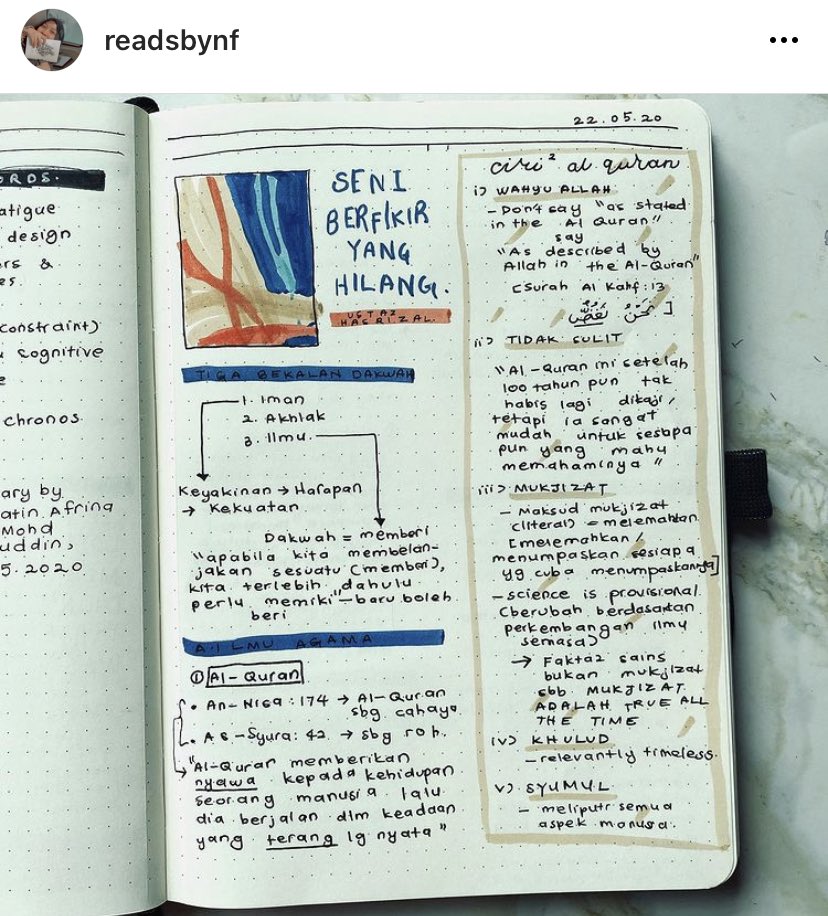 readsbynf
ORDS.
atigue
design
ers &
es.
constraint)
cognitive
e
chronos
ary by
atin Afrina
Mohd
uddin,
5.2020
22.05.20
SENI
BERFIKIR
YANG
HILANG.
USTAZ
HASRIZAL.
TIGA BEKALAN DAKWAH
1. Iman
2. Akhlak
3. Ilmu
Keyakinan → Harapan
→ Kekuatan
Dakwah = memberi
"apabila kita membelan-
jakan sesuatu (memberi),
kita terlebih dahulu
perlu memiki" – baru boleh
beri
A. ILMU AGAMA
① Al-Quran
• An-Nisa : 174 → Al-Quran
sbg cahaya.
• As-Syura: 42 → sbg roh.
"Al-Quran memberikan
nyawa kepada kehidupan
seorang manusia lalu
dia berjalan dlm keadaan
yang terang lg nyata"
ciri² al quran
i) WAHYU ALLAH
- Don't say "as stated
in the Al Quran"
say
"As described by
Allah in the Al-Quran"
(Surah Al Kahf:13
[ نَحْنُ نَقُصُّ
ii) TIDAK SULIT
"Al-Quran ini setelah
100 tahun pun tak
habis lagi dikaji,
tetapi ia sangat
mudah untuk sesiapa
pun yang mahu
memahaminya"
iii) MUKJIZAT
- Maksud mukjizat
(literal) = melemahkan
[melemahkan /
menumpaskan sesiapa
yg cuba menumpaskannya]
- science is provisional
(berubah berdasarkan
perkembangan ilmu
semasa)
→ Fakta2 sains
bukan mukjizat
sbb MUKJIZAT
ADALAH TRUE ALL
THE TIME
iv) KHULUD
- relevantly timeless.
v) SYUMUL
- meliputi semua
aspek manusia.